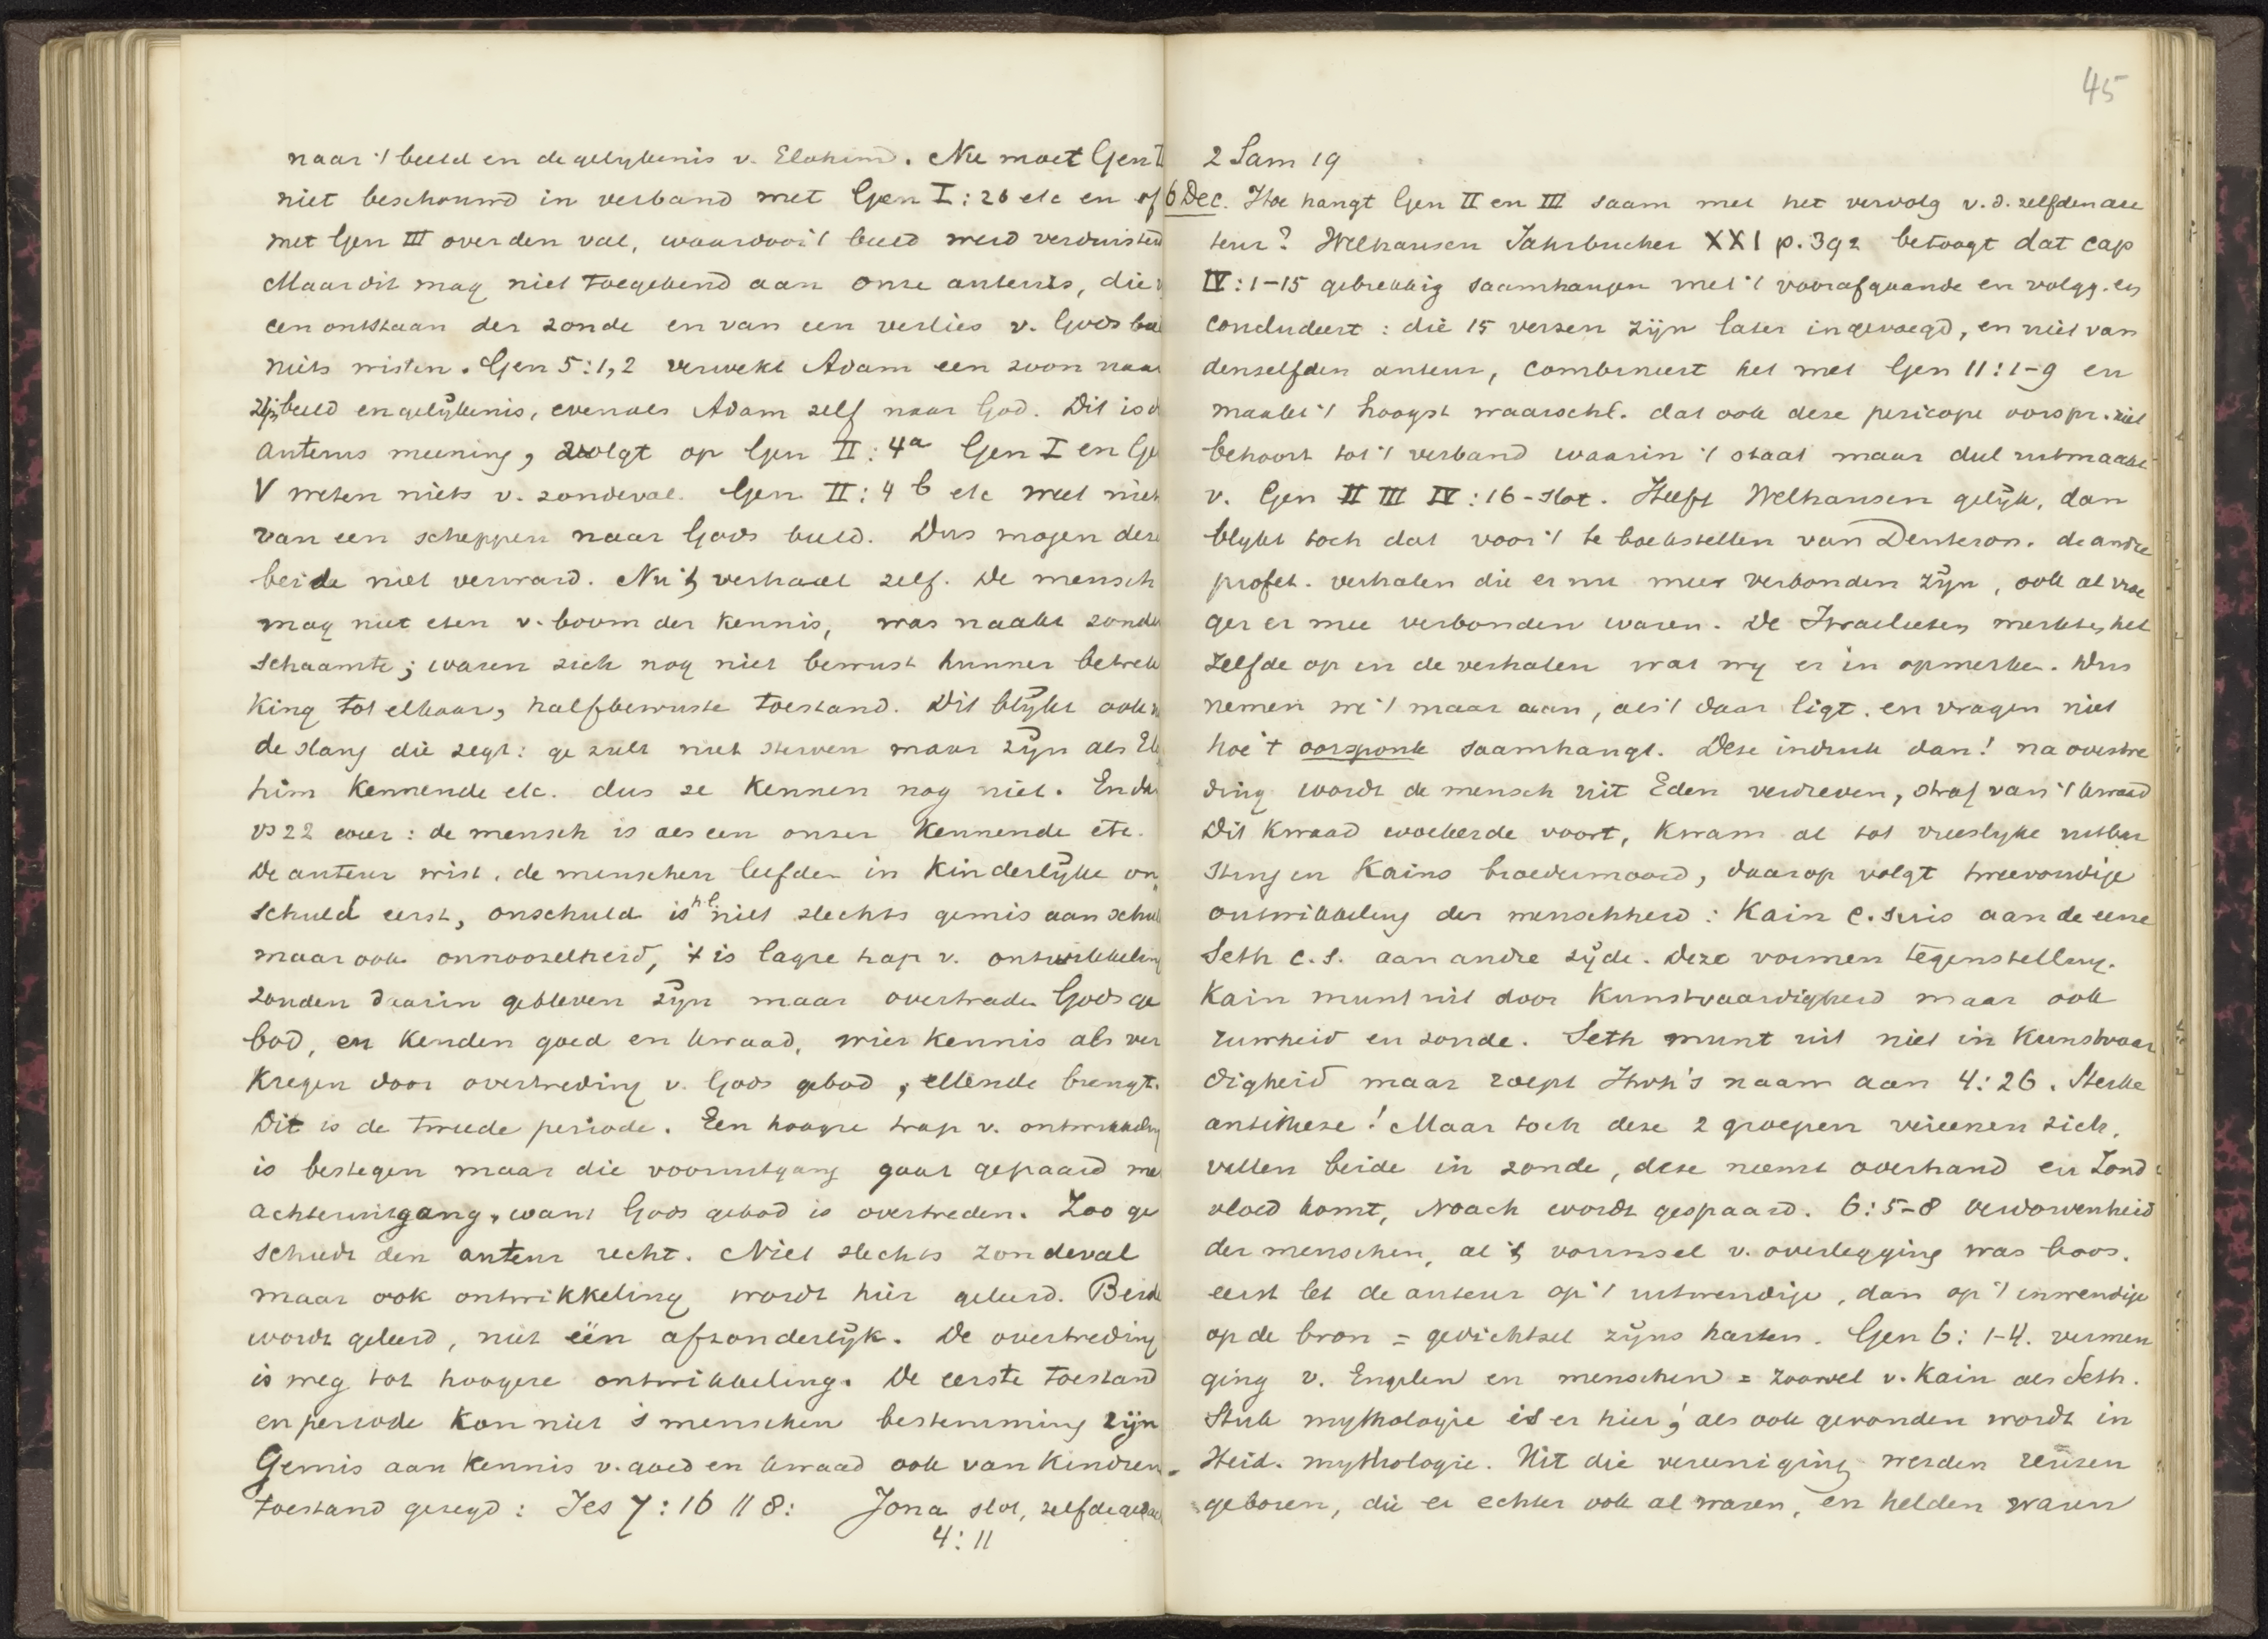 45
naar 't beeld en de gelykenis v. Elohim. Nu moet Gen II
niet beschouwd in verband met Gen I : 26 etc en of
met Gen III over den val, waardoor 't beeld werd verduisterd
Maar dit mag niet toegekend aan onze auteurs, die v
een ontstaan der zonde en van een verlies v. Gods bee
niets wisten. Gen 5:1,2 verwekt Adam een zoon naar
zijn beeld en gelijkenis, evenals Adam zelf naar God. Dit is d
auteurs meening, volgt op Gen II : 4a Gen I en Ge
V weten niets v. zondeval. Gen II : 4 b etc weet niet
van een scheppen naar Gods beeld. Dus mogen deze
beide niet verward. Nu 't verhaal zelf. De mensch
mag niet eten v. boom der kennis, was naakt zonder
schaamte; waren zich nog niet bewust hunner betrek
king tot elkaar, halfbewuste toestand. Dit blijkt ook u
de slang die zegt: ge zult niet sterven maar zijn als Elo
him kennende etc. dus ze kennen nog niet. En da
vs 22 weer : de mensch is als een onzer kennende etc.
De auteur wist, de menschen leefden in kinderlijke on
schuld eerst, onschuld is hl. niet slechts gemis aan schul
maar ook onnoozelheid, 't is lagre trap v. ontwikkeling
zonden daarin gebleven zijn maar overtraden Gods ge
bod, en kenden goed en kwaad, wier kennis als ver
kregen door overtreding v. Gods gebod, ellende brengt.
Dit is de tweede periode. Een hoogre trap v. ontwikkeling
is bestegen maar die vooruitgang gaat gepaard me
achteruitgang, want Gods gebod is overtreden. Zoo ge
schiedt den auteur recht. Niet slechts zondeval
maar ook ontwikkeling wordt hier geleerd. Beide
wordt geleerd, niet één afzonderlijk. De overtreding
is weg tot hoogere ontwikkeling. De eerste toestand
en periode kon niet 's menschen bestemming zijn
Gemis aan kennis v. goed en kwaad ook van kindren
toestand gezegd : Jes 7 : 16 || 8 : Jona slot, zelfde gedac
4 : 11
2 Sam 19
6 Dec. Hoe hangt Gen II en III saam met het vervolg v. d. zelfden au
teur? Welhausen Jahrbucher XXI p. 392 betoogt dat cap
IV : 1-15 gebrekkig saamhangen met 't voorafgaande en volgg. en
concludeert : die 15 verzen zijn later ingevoegd, en niet van
denzelfden auteur, combineert het met Gen 11 : 1-9 en
maakt 't hoogst waarschl. dat ook deze pericope oorspr. niet
behoort tot 't verband waarin 't staat maar deel uitmaakt
v. Gen II III IV : 16 - slot. Heeft Welhausen gelijk, dan
blykt toch dat voor 't te boekstellen van Deuteron. de andre
profet. verhalen die er nu mee verbonden zijn, ook al vroe
ger er mee verbonden waren. De Israelieten merkten het
zelfde op in de verhalen wat wy er in opmerken. Dus
nemen we 't maar aan, als 't daar ligt. en vragen niet
hoe 't oorspronk saamhangt. Deze indruk dan! na overtre
ding wordt de mensch uit Eden verdreven, straf van 't kwaad
Dit kwaad woekerde voort, kwam al tot vreeslyke uitbar
sting in Kains broedermoord, daarop volgt tweevoudige
ontwikkeling der menschheid : Kain c. suis aan de eene
Seth c. s. aan andre zijde. Deze vormen tegenstelling.
Kain munt uit door kunstvaardigheid maar ook
ruwheid en zonde. Seth munt uit niet in kunstvaar
digheid maar roept Jhvh's naam aan 4 : 26. Sterke
antithese! Maar toch deze 2 groepen vereenen zich,
vallen beide in zonde, deze neemt overhand en Zond
vloed komt, Noach wordt gespaard. 6 : 5-8 Verdorvenheid
der menschen, al 't voornsel v. overlegging was boos.
eerst let de auteur op 't uitwendige, dan op 't inwendige
op de bron = gedichtsel zijns harten. Gen 6 : 1-4. vermen
ging v. Engelen en menschen = zoowel v. Kain als Seth.
Stuk mythologie is er hier, als ook gevonden wordt in
Heid. mythologie. Uit die vereeniging werden reuzen
geboren, die er echter ook al waren, en helden waren